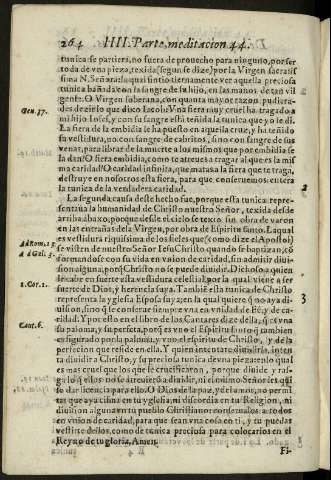 264 IIII. Parte, meditacion 44.
tunica se partiera, no fuera de prouecho para ninguno, por ser
toda de vna pieza, texida (segun se dize) por la Virgen sacratis
sima N. Señora: la qual sintio tiernamente ver aquella preciosa
tunica bañada en la sangre de su hijo, en las manos de tan vil
gente. O Virgen soberana, con quanta mayor razon pudiera-
des dezir lo que dixo Iacob: Vna fiera muy cruel ha tragado a
mi hijo Iosef, y con su sangre està teñida la tunica que yo le di.
La fiera de la embidia le ha puesto en aquella cruz, y ha teñido
su vestidura, no con sangre de cabritos, sino con sangre de sus
venas, para librar de la muerte a los mismos que por embidia se
la dan. O fiera embidia, como te atreues a tragar al que es la mis
ma caridad? O caridad infinita, que matas a la fiera que te traga,
destruye en nosotros esta fiera, para que conseruemos entera
la tuniza de la verdadera caridad.
La segunda causa deste hecho fue, porque esta tunica repre-
sentaua la humanidad de Christo nuestro Señor, texida desde
arriba abaxo, porque desde el cielo se texio sin obra de varon
en las entrañas de la Virgen, por obra de Espiritu santo. La qual
es vestidura riquissima de los fieles que (como dize el Apostol)
se visten de nuestro Señor Iesu Christo quando se baptizan, cõ
formandose con su vida en vnion de caridad, sin admitir diui-
sion alguna, porq̃ Christo no se puede diuidir. Dichoso a quien
le cabe en suerte esta vestidura celestial, por la qual viene a ser
suerte de Dios, y herencia suya. Tambiẽ esta tunica de Christo
representa la yglesia Esposa suya; en la qual quiere q̃ no aya di-
uision, sino q̃ se conserue siempre vna en vnidad de Fè, y de ca-
ridad. Y por esto en el libro de los Cantares dize della, q̃ es vna
su paloma, y su perfeta, porq̃ es vno el Espiritu santo q̃ tambien
es figurado por la paloma, y vno el espiritu de Christo, y de la
perfeccion que reside en ella. Y quien intentare diuidirla, inten
ta diuidir a Christo, y su preciosa tunica de vna pieza: en lo qual
es mas cruel que los que le crucificaron, porque diuide y ras-
ga lo q̃ ellos no se atreuieron a diuidir, ni el mismo Señor les qui
so dar licencia para ello. O Dios de la paz, y de la vnion, no permi
tas que aya cisma en tu yglesia, ni discordia en tu Religion, ni
diuision alguna en tu pueblo Christiano: conserualos a todos
en vnion de caridad, para que sean vna cosa en ti, y tu puedas
vestirte dellos, como de tunica preciosa para colocarlos en el
Reyno de tu gloria, Amen.
Fi-
Gen. 37.
A Rom. 13
A Gal. 3.
1. Cor. 1.
Cant. 6.
2
3